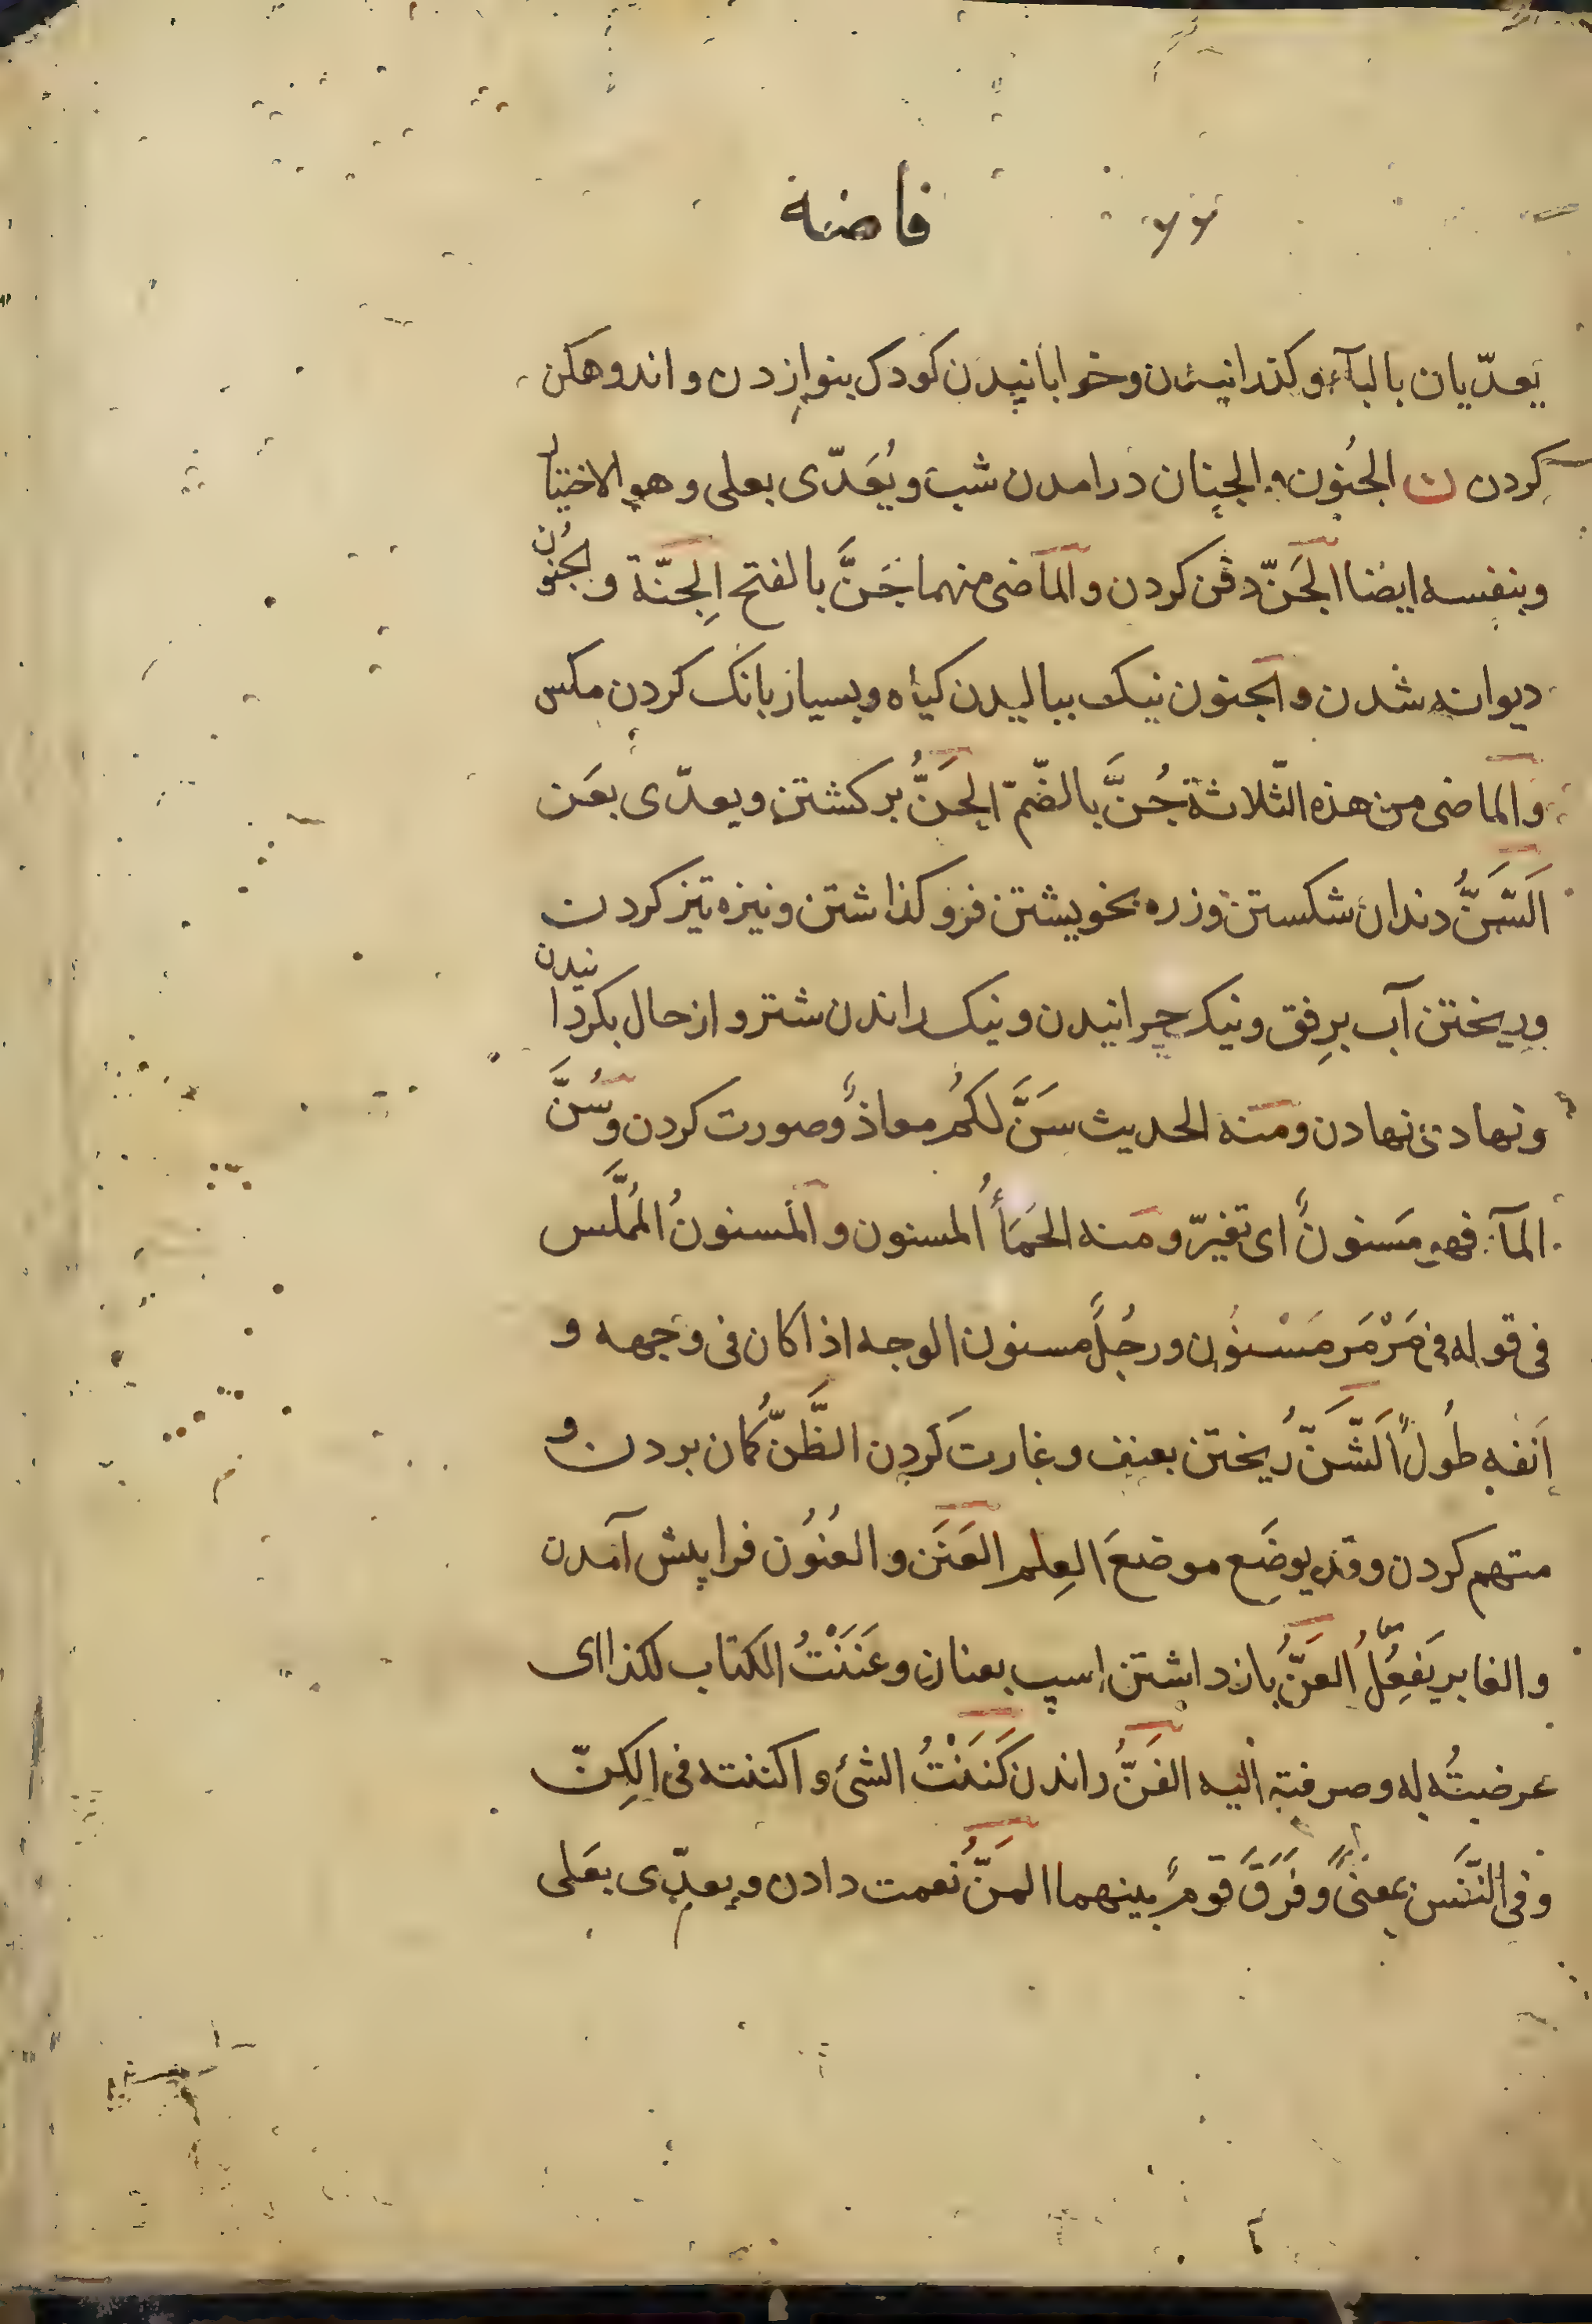 فاضة
يعدّيان بالبآء وكذرانيدن وخوابانيدن كودك بنوازدن واندوهكن
كردن ن الجُنون والجنان درامدن شب ويُعَدّى بعلى وهو الاختيار
وبنفسه ايضا الجَنّ دفن كردن والماضى منهما جَنَّ بالفتح الِجنّة والجُنُون
ديوانه شدن والجنون نيك بباليدن كياه وبسيار بانك كردن مكس
والماضى من هذه الثّلاثة جُنَّ بالضّمّ الجَنُّ بركشتن ويعدّى بعَن
اَلسَّنُّ دندان شكستن وزره بخويشتن فروكذاشتن ونيزه تيز كردن
وريختن آب برِفق ونيك چرانيدن ونيك راندن شتر واز حال بكردانيدن
ونهادنى نهادن ومنه الحديث سَنَّ لكُم معاذٌ وصورت كردن وسُنَّ
المآء فهو مَسنونٌ اى تغيّر ومنه الحَمَأُ المسنون والمَسنونُ المُملَّس
فى قوله فى مَرْمَر مَسْنُون ورجُلٌ مسنون الوجه اذا كان فى وجهه و
اَنفه طُولٌ اَلشَّنّ رُيختن بعنف وغارت كردن الظَّنُّ كمان بردن و
متهم كردن وقد يوضَع موضعَ العِلم العَنَن والعُنُون فرا پيش آمدن
والغابر يَفعِلُ العَنُّ بازداشتن اسپ بعنان وعَنَنْتُ الكتاب لكذا اى
عرضتُه له وصرفته اليه الفَنُّ راندن كَنَنْتُ الشئ واكننته فى الكِنّ
وفى النَّفس بمعنًى وفَرَقَ قومٌ بينهما المَنُّ نعمت دادن ويعدّى بعَلى